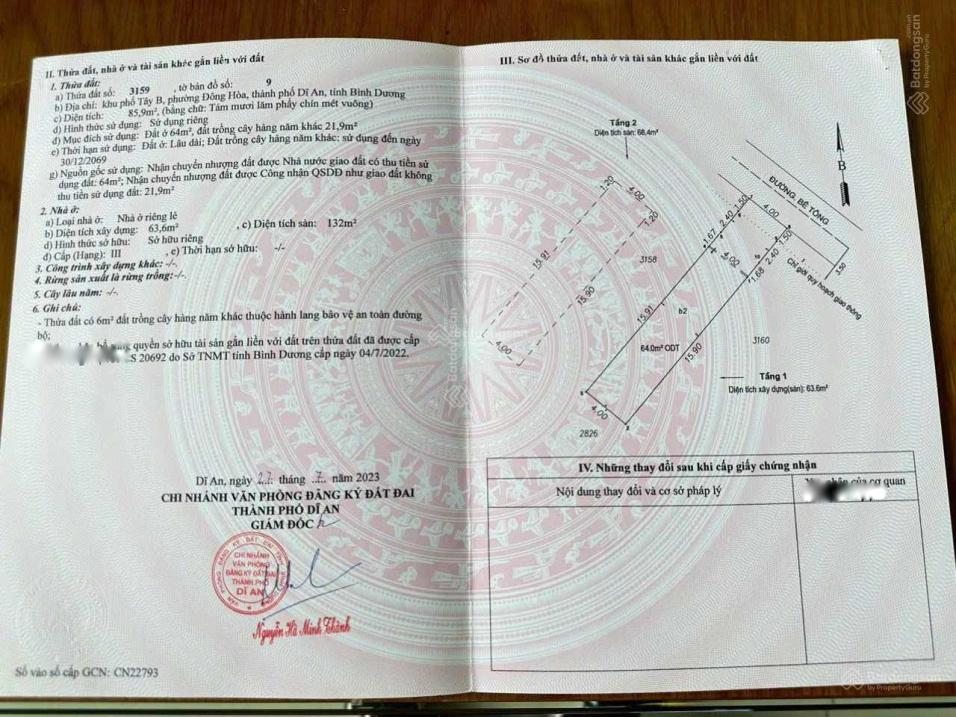 II. Thửa đất, nhà ở và tài sản khác gắn liền với đất
1. Thửa đất:
a) Thửa đất số: 3159 , tờ bản đồ số: 9
b) Địa chỉ: khu phố Tây B, phường Đông Hòa, thành phố Dĩ An, tỉnh Bình Dương
c) Diện tích: 85,9m², (bằng chữ: Tám mươi lăm phẩy chín mét vuông)
d) Hình thức sử dụng: Sử dụng riêng
đ) Mục đích sử dụng: Đất ở 64m², đất trồng cây hàng năm khác 21,9m²
e) Thời hạn sử dụng: Đất ở: Lâu dài; Đất trồng cây hàng năm khác: sử dụng đến ngày
30/12/2069
g) Nguồn gốc sử dụng: Nhận chuyển nhượng đất được Nhà nước giao đất có thu tiền sử
dụng đất: 64m²; Nhận chuyển nhượng đất được Công nhận QSDĐ như giao đất không
thu tiền sử dụng đất: 21,9m²
2. Nhà ở:
a) Loại nhà ở: Nhà ở riêng lẻ
b) Diện tích xây dựng: 63,6m² , c) Diện tích sàn: 132m²
d) Hình thức sở hữu: Sở hữu riêng
đ) Cấp (Hạng): III , e) Thời hạn sở hữu: -/-
3. Công trình xây dựng khác: -/-
4. Rừng sản xuất là rừng trồng:-/-
5. Cây lâu năm: -/-
6. Ghi chú:
- Thửa đất có 6m² đất trồng cây hàng năm khác thuộc hành lang bảo vệ an toàn đường
bộ;
quyền sở hữu tài sản gắn liền với đất trên thửa đất đã được cấp
S 20692 do Sở TNMT tỉnh Bình Dương cấp ngày 04/7/2022.
Dĩ An, ngày 27 tháng 7 năm 2023
CHI NHÁNH VĂN PHÒNG ĐĂNG KÝ ĐẤT ĐAI
THÀNH PHỐ DĨ AN
GIÁM ĐỐC
CHI NHÁNH
VĂN PHÒNG
ĐĂNG KÝ ĐẤT ĐAI
THÀNH PHỐ
DĨ AN
Nguyễn Hà Minh Thành
Số vào sổ cấp GCN: CN22793
III. Sơ đồ thửa đất, nhà ở và tài sản khác gắn liền với đất
Tầng 2
Diện tích sàn: 68.4m²
B
ĐƯỜNG BÊ TÔNG
1.20
4.00
1.20
15.91
15.90
4.00
3158
1.50
2.40
1.67
4.00
4.00
1.50
2.40
1.68
3.50
Chỉ giới quy hoạch giao thông
15.91
b2
64.0m² ODT
15.90
3160
4.00
2826
Tầng 1
Diện tích xây dựng(sàn): 63.6m²
IV. Những thay đổi sau khi cấp giấy chứng nhận
Nội dung thay đổi và cơ sở pháp lý
nhận của cơ quan
Batdongsan
by PropertyGuru
by PropertyGuru